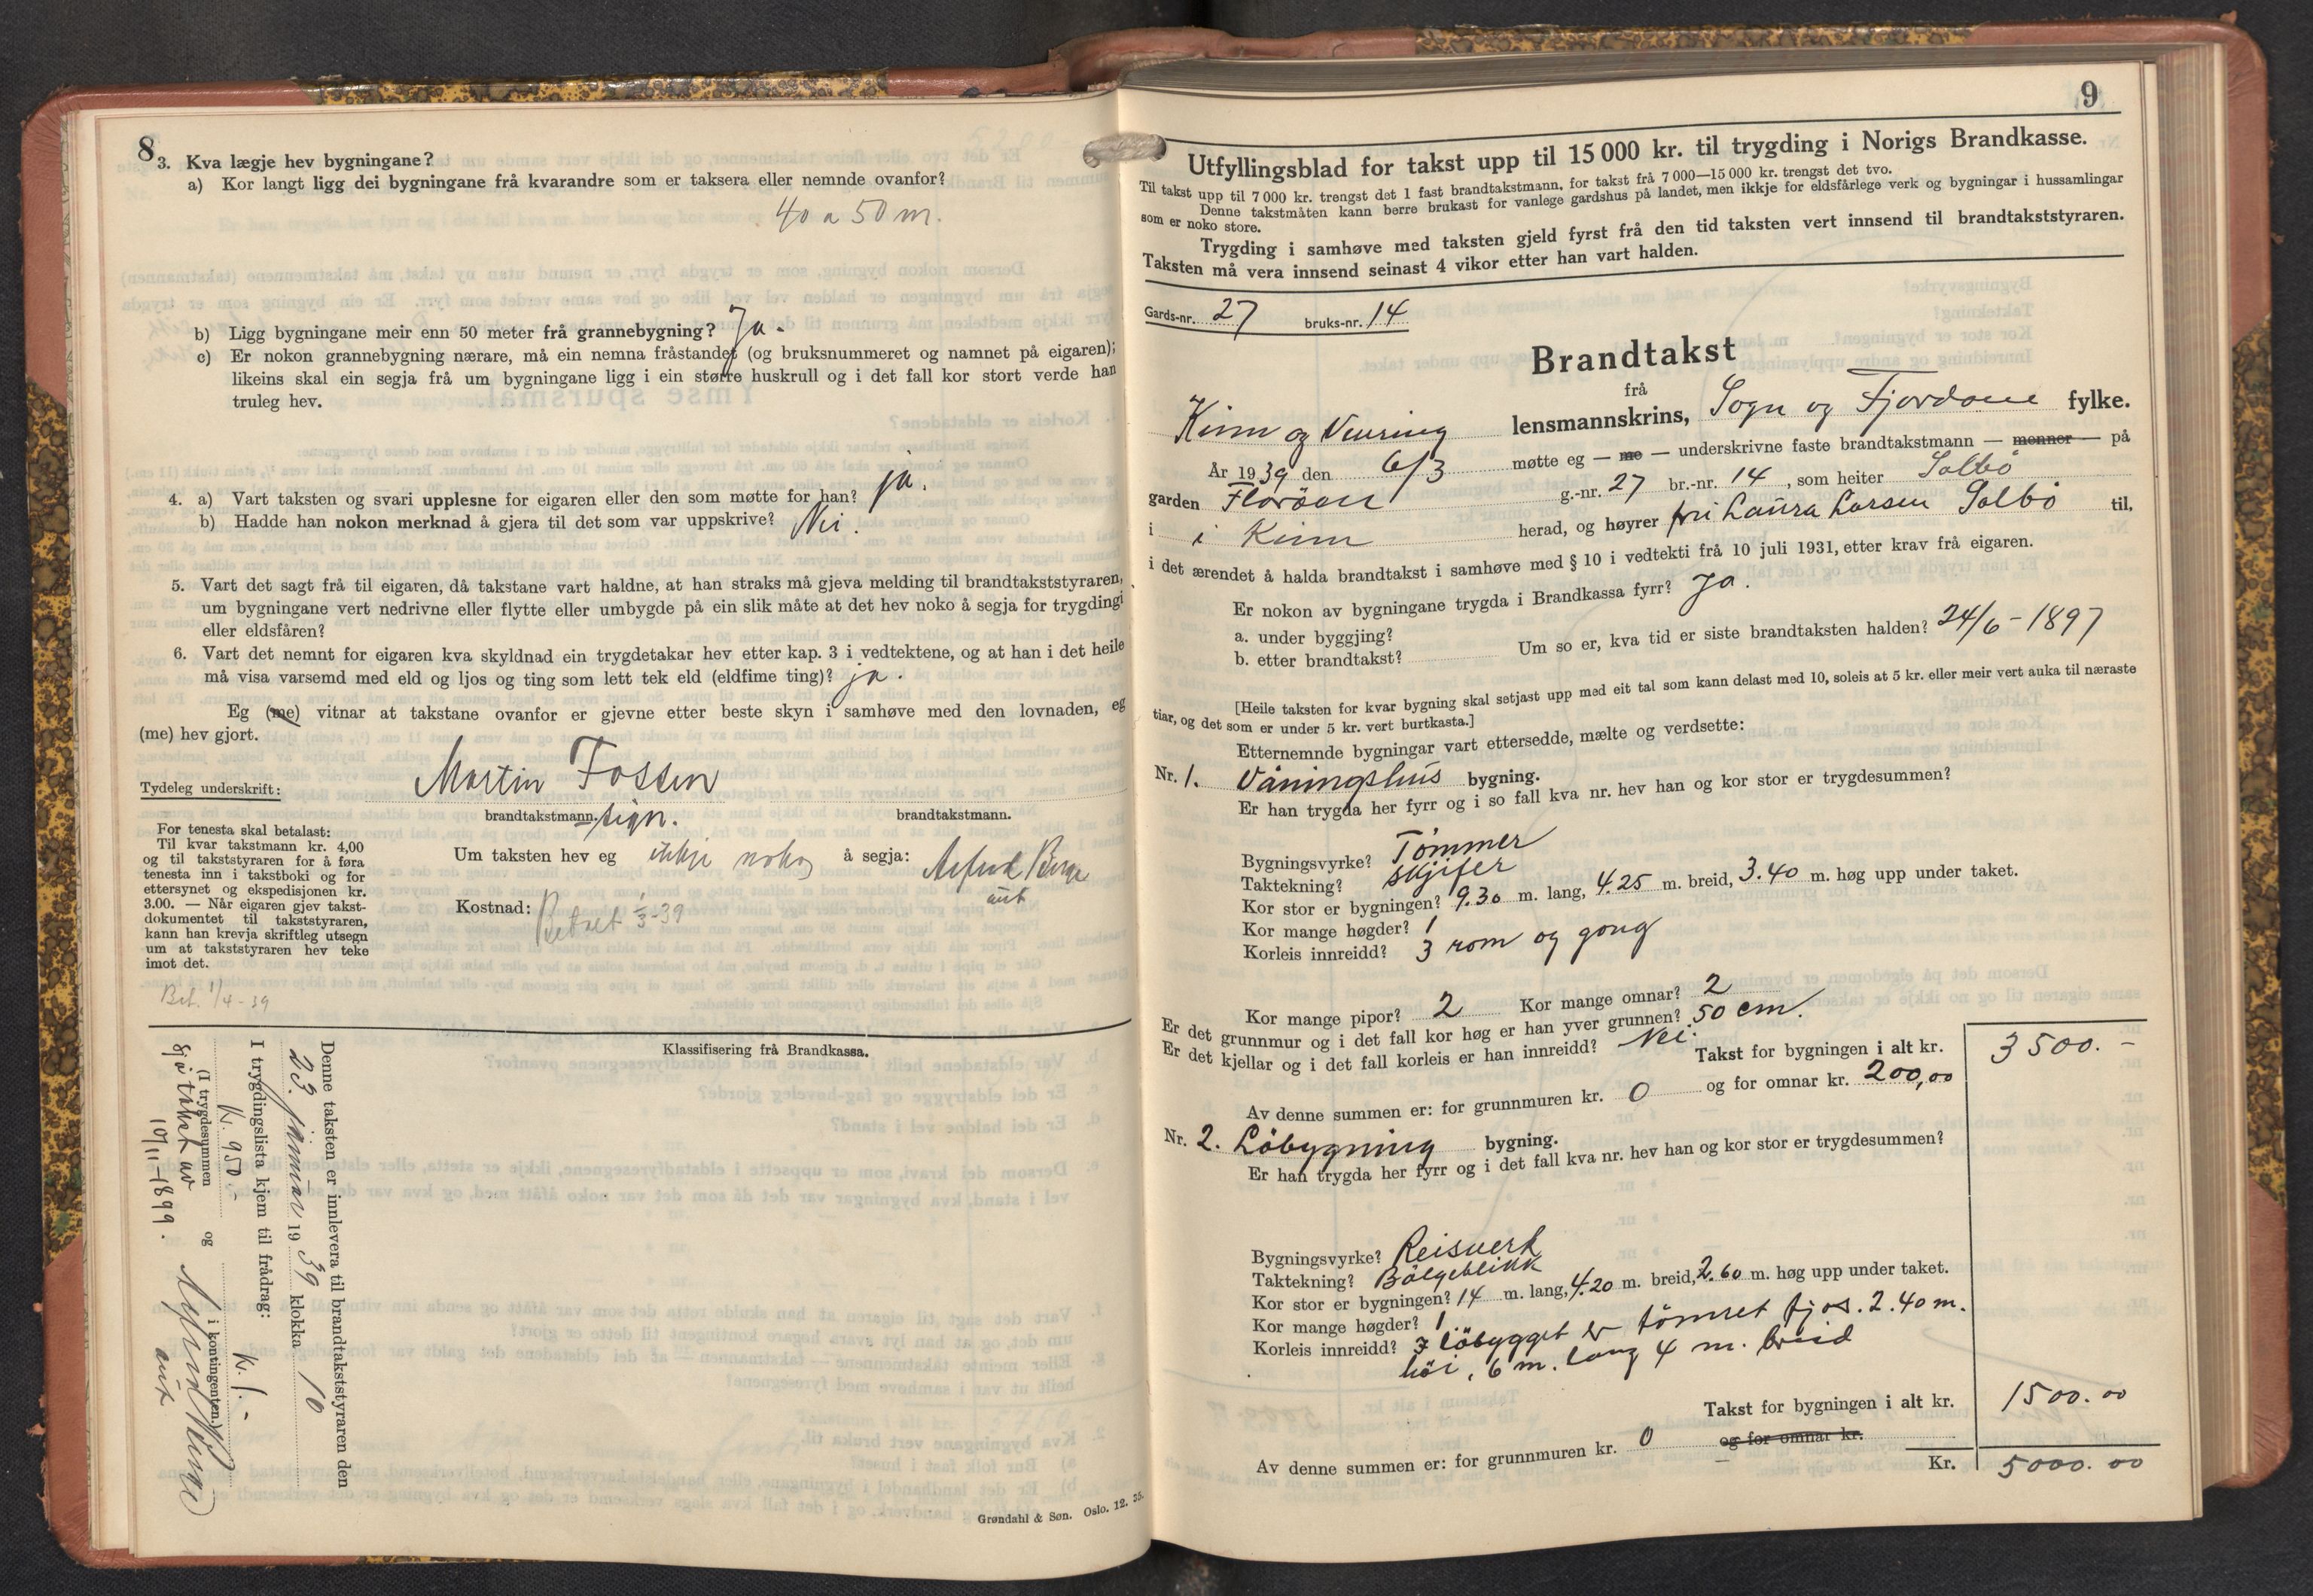 8
3. Kva lægje hev bygningane?
a) Kor langt ligg dei bygningane frå kvarandre som er taksera eller nemnde ovanfor?
40 a 50 m.
b) Ligg bygningane meir enn 50 meter frå grannebygning? Ja.
c) Er nokon grannebygning nærare, må ein nemna fråstandet (og bruksnummeret og namnet på eigaren);
likeins skal ein segja frå um bygningane ligg i ein større huskrull og i det fall kor stort verde han
truleg hev.
4. a) Vart taksten og svari upplesne for eigaren eller den som møtte for han? ja.
b) Hadde han nokon merknad å gjera til det som var uppskrive? Nei.
5. Vart det sagt frå til eigaren, då takstane vart haldne, at han straks må gjeva melding til brandtakststyraren,
um bygningane vert nedrivne eller flytte eller umbygde på ein slik måte at det hev noko å segja for trygdingi
eller eldsfåren?
6. Vart det nemnt for eigaren kva skyldnad ein trygdetakar hev etter kap. 3 i vedtektene, og at han i det heile
må visa varsemd med eld og ljos og ting som lett tek eld (eldfime ting)? ja.
Eg (me) vitnar at takstane ovanfor er gjevne etter beste skyn i samhøve med den lovnaden, eg
(me) hev gjort.
Tydeleg underskrift: Martin Fossen
brandtakstmann. sign. brandtakstmann.
For tenesta skal betalast:
Til kvar takstmann kr. 4,00
og til takststyraren for å føra
tenesta inn i takstboki og for
ettersynet og ekspedisjonen kr.
3.00. — Når eigaren gjev takst-
dokumentet til takststyraren,
kann han krevja skriftleg utsegn
um at takststyraren hev teke
imot det.
Um taksten hev eg inkje noko å segja:
aut
Kostnad: Betalt 1/3-39
Bet. 1/4-39
Klassifisering frå Brandkassa.
Denne taksten er innlevera til brandtakststyraren den
23. januar 1939 klokka 10
I trygdingslista kjem til frådrag:
kr. 950.- kr. 1.-
(I trygdesummen og i kontingenten.)
10/11-1899.
aut
Grøndahl & Søn. Oslo. 12. 35.
9
Utfyllingsblad for takst upp til 15 000 kr. til trygding i Norigs Brandkasse.
Til takst upp til 7 000 kr. trengst det 1 fast brandtakstmann, for takst frå 7 000—15 000 kr. trengst det tvo.
Denne takstmåten kann berre brukast for vanlege gardshus på landet, men ikkje for eldsfårlege verk og bygningar i hussamlingar
som er noko store.
Trygding i samhøve med taksten gjeld fyrst frå den tid taksten vert innsend til brandtakststyraren.
Taksten må vera innsend seinast 4 vikor etter han vart halden.
Gards-nr. 27 bruks-nr. 14
Brandtakst
frå
Kinn og Vevring lensmannskrins, Sogn og Fjordane fylke.
År 1939 den 6/3 møtte eg — me — underskrivne faste brandtakstmann — menner — på
garden Floröen g.-nr. 27 br.-nr. 14, som heiter Solbö
i i Kinn herad, og høyrer fru Laura Larsen Solbö til,
i det ærendet å halda brandtakst i samhøve med § 10 i vedtekti frå 10 juli 1931, etter krav frå eigaren.
Er nokon av bygningane trygda i Brandkassa fyrr? Ja.
a. under byggjing?
b. etter brandtakst? Um so er, kva tid er siste brandtaksten halden? 24/6-1897
[Heile taksten for kvar bygning skal setjast upp med eit tal som kann delast med 10, soleis at 5 kr. eller meir vert auka til næraste
tiar, og det som er under 5 kr. vert burtkasta.]
Etternemnde bygningar vart ettersedde, mælte og verdsette:
Nr. 1. Våningshus bygning.
Er han trygda her fyrr og i so fall kva nr. hev han og kor stor er trygdesummen?
Bygningsvyrke? Tömmer
Taktekning? skjifer
Kor stor er bygningen? 9.30 m. lang, 4.25 m. breid, 3.40 m. høg upp under taket.
Kor mange høgder? 1
Korleis innreidd? 3 rom og gong
Kor mange pipor? 2 Kor mange omnar? 2
Er det grunnmur og i det fall kor høg er han yver grunnen? 50 cm.
Er det kjellar og i det fall korleis er han innreidd? Nei.
Takst for bygningen i alt kr. 3500.-
Av denne summen er: for grunnmuren kr. 0 og for omnar kr. 200,00
Nr. 2. Löbygning bygning.
Er han trygda her fyrr og i det fall kva nr. hev han og kor stor er trygdesummen?
Bygningsvyrke? Reisverk
Taktekning? Bölgeblikk
Kor stor er bygningen? 14 m. lang, 4.20 m. breid, 2.60 m. høg upp under taket.
Kor mange høgder? 1
Korleis innreidd? I löbygget er tömret fjos. 2.40 m.
höi, 6 m. lang 4 m. breid
Takst for bygningen i alt kr. 1500.00
Av denne summen er: for grunnmuren kr. 0 og for omnar kr.
Kr. 5000.00